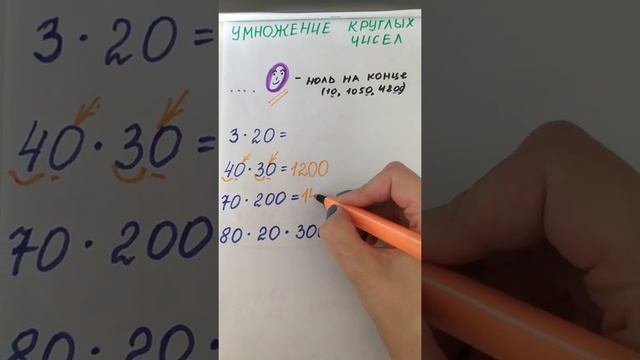 УМНОЖЕНИЕ КРУГЛЫХ
ЧИСЕЛ
.... 0 - НОЛЬ НА КОНЦЕ
(10, 1050, 480)
3 · 20 =
40 · 30 = 1200
70 · 200 = 14
80 · 20 · 300
3 · 20 =
40 · 30 =
70 · 200
80 · 20 ·